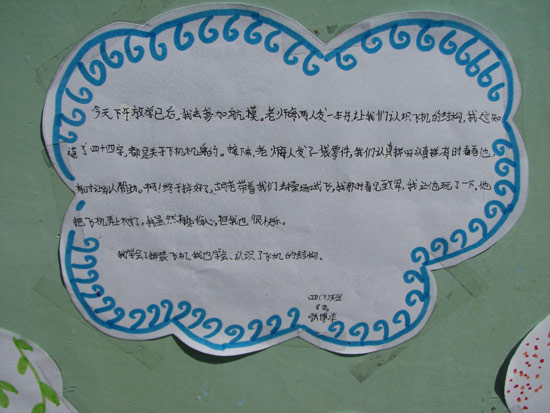 今天下午放学已后,我去参加航模。老师每两人发一卡片让我们认识飞机的结构,我这知
道了四十四字,都是关于飞机机翼的。接下来,老师每人发了一袋零件,我们认真拼呀认真拼,有时看看他
有时让别人帮助。啊!终于拼好了,胡老带着我们去操场试飞,我那时看见效军,我让他玩了一下,他
把飞机弄上树了,我虽然有些伤心,但我也很快乐。
我学会了拼装飞机,我也学会、认识了飞机的结构。
四(7)班